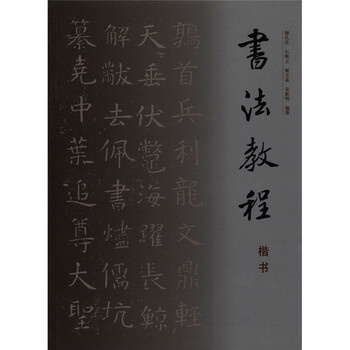 書法教程
楷书
鶉首兵利龍文鼎輕
天垂伏鼈海躍長鯨
解黻去佩書燼儒坑
纂堯中葉追尊大聖